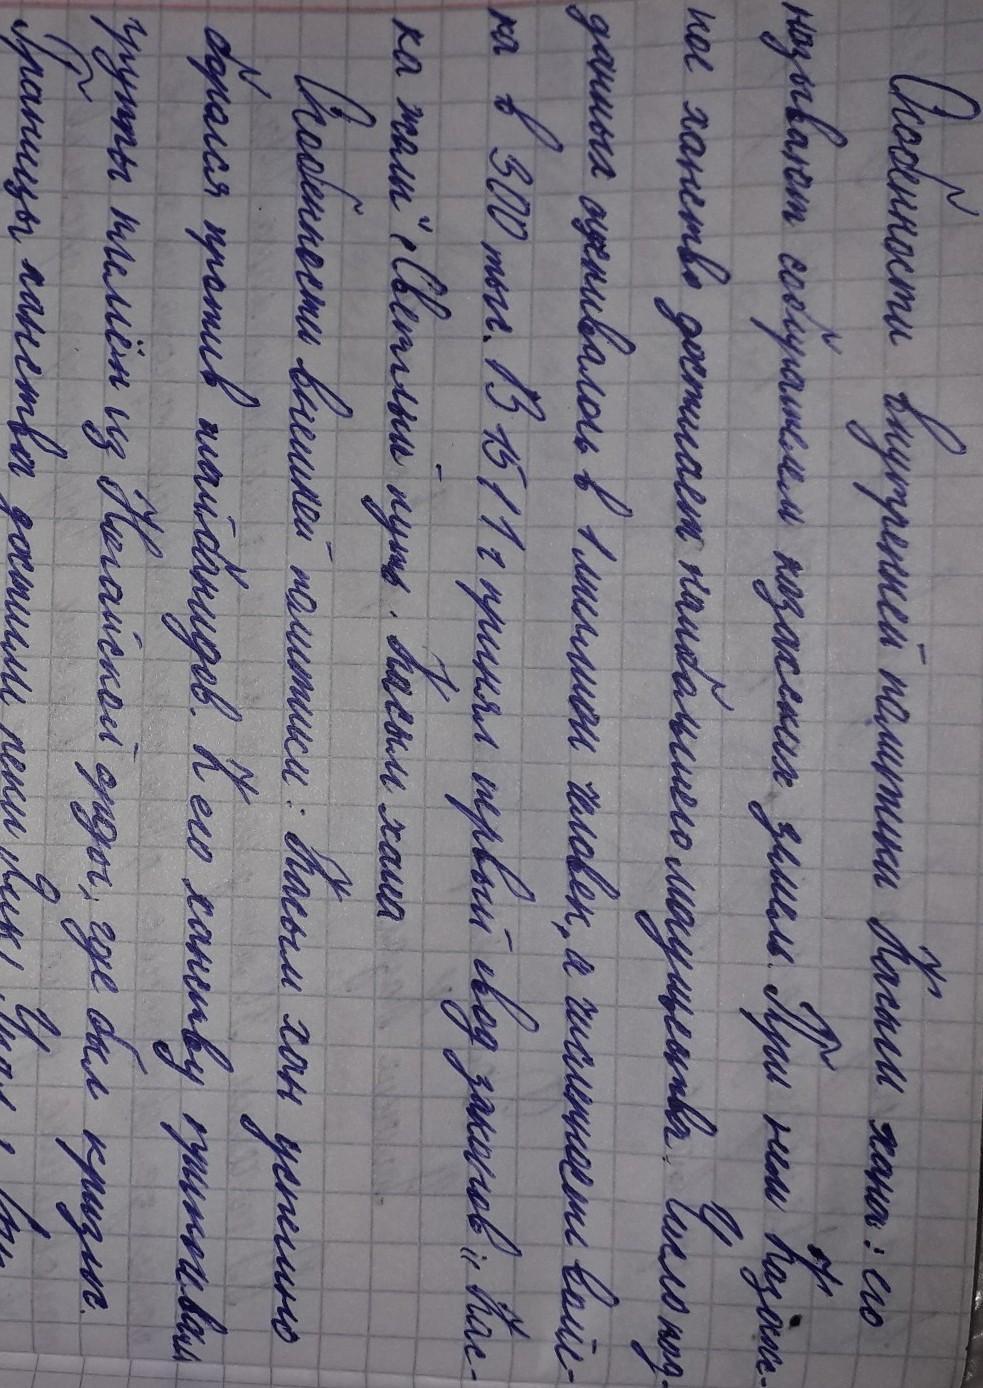 Особенности внутренней политики Касым хана: его
называют собирателем казахских земель. При нем Казахс-
кое ханство достигает наибольшего могущества. Число под-
данных оценивалось в 1 миллион человек, а численность войс-
ка в 300 тыс. В 1511 г принял первый свод законов „Кас-
ка жолы" Светлый путь. Касым хана
Особенности внешней политики: Касым хан успешно
обрался против шайбанидов. К его ханству примкнули
группы племён из Ногайской орды, где был кризис.
Границы ханства достигли реки